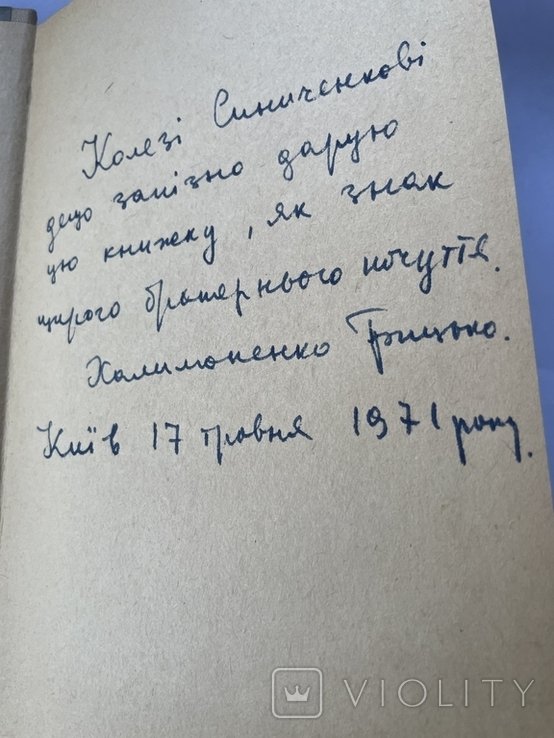 Колезі Синиченкові
дещо запізно дарую
цю книжку, як знак
щирого братернього почуття.
Халимоненко Грицько.
Київ 17 травня 1971 року.
VIOLITY